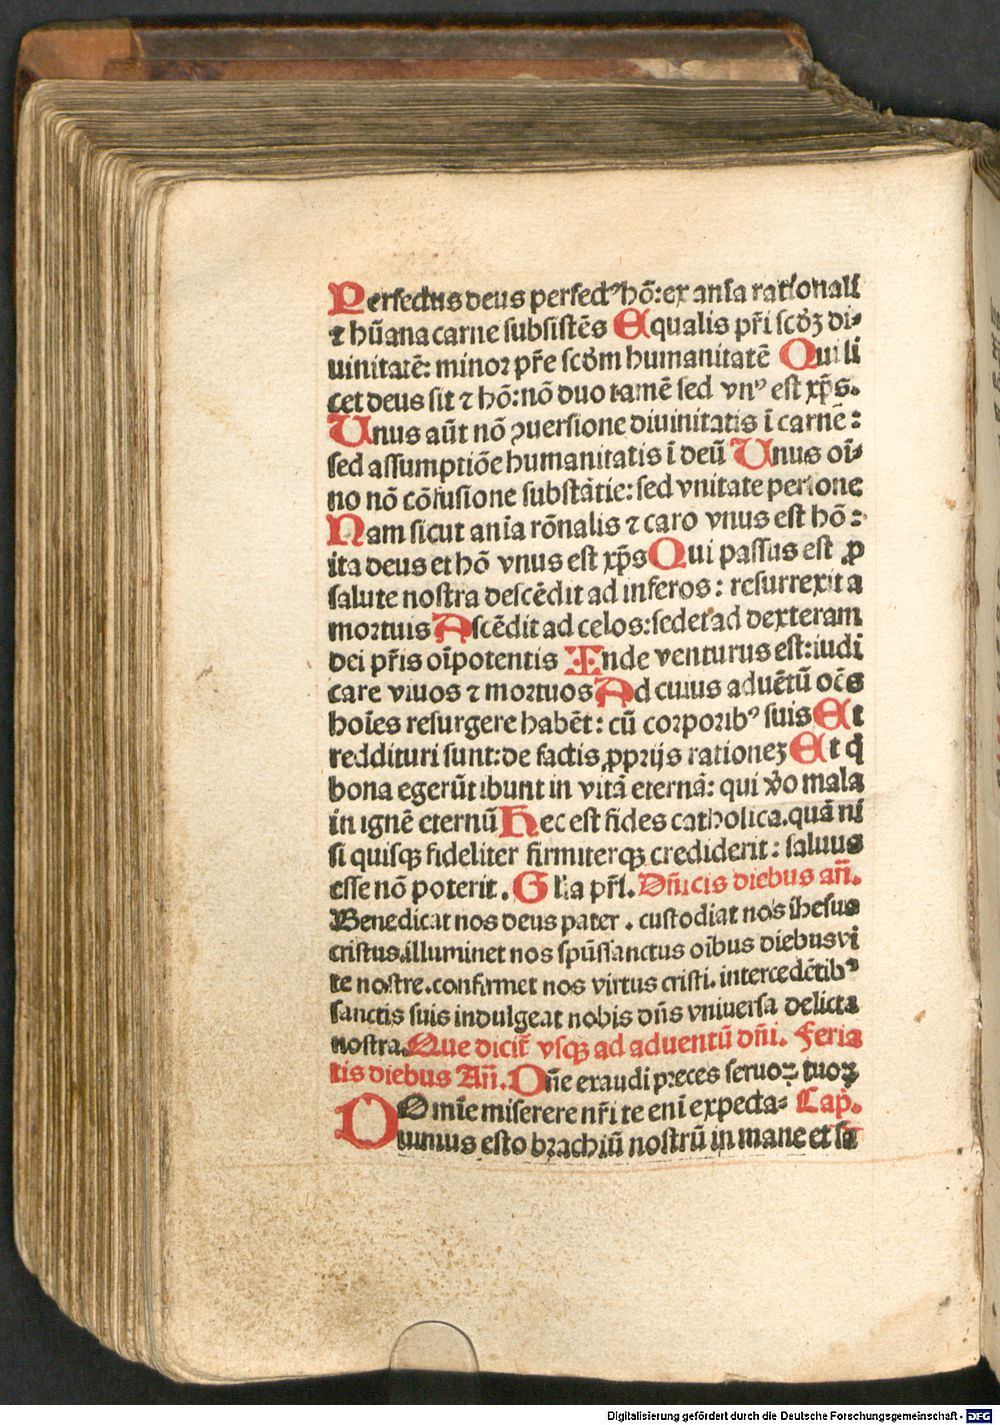 Perfectus deus perfectꝰ hō: ex anīa rationali
⁊ hūana carne subsistēs Equalis pr̄i scd̄ꝫ di⸗
uinitatē: minor pr̄e scd̄m humanitatē Qui li
cet deus sit ⁊ hō: nō duo tamē sed vnꝰ est xp̄s.
Unus aūt nō ꝯuersione diuinitatis ī carnē:
sed assumptiōe humanitatis ī deū Unus oī⸗
no nō cōfusione substātie: sed vnitate persone
Nam sicut anīa rōnalis ⁊ caro vnus est hō:
ita deus et hō vnus est xp̄s Qui passus est ꝓ
salute nostra descēdit ad inferos: resurrexit a
mortuis Ascēdit ad celos: sedet ad dexteram
dei pr̄is oīpotentis Inde venturus est: iudi
care viuos ⁊ mortuos Ad cuius aduētū oēs
hoīes resurgere habēt: cū corporibꝰ suis Et
reddituri sunt: de factis ꝓprijs rationeꝫ Et q̄
bona egerūt ibunt in vitā eternā: qui v̄o mala
in ignē eternū Hec est fides catholica. quā ni
si quisqꝫ fideliter firmiterqꝫ crediderit: saluus
esse nō poterit. Gl̄ia pr̄i. Dn̄icis diebus an̄.
Benedicat nos deus pater. custodiat nos ihesus
cristus. illuminet nos spūssanctus oībus diebus vi
te nostre. confirmet nos virtus cristi. intercedētibꝰ
sanctis suis indulgeat nobis dn̄s vniuersa delicta
nostra. Que dicit᷑ vsqꝫ ad aduentū dn̄i. Feria
tis diebus An̄. Dn̄e exaudi preces seruoꝝ tuoꝝ
DOmīe miserere nr̄i te enī expecta⸗ Cap̄.
uimus esto brachiū nostrū in mane et sa
Digitalisierung gefördert durch die Deutsche Forschungsgemeinschaft - DFG